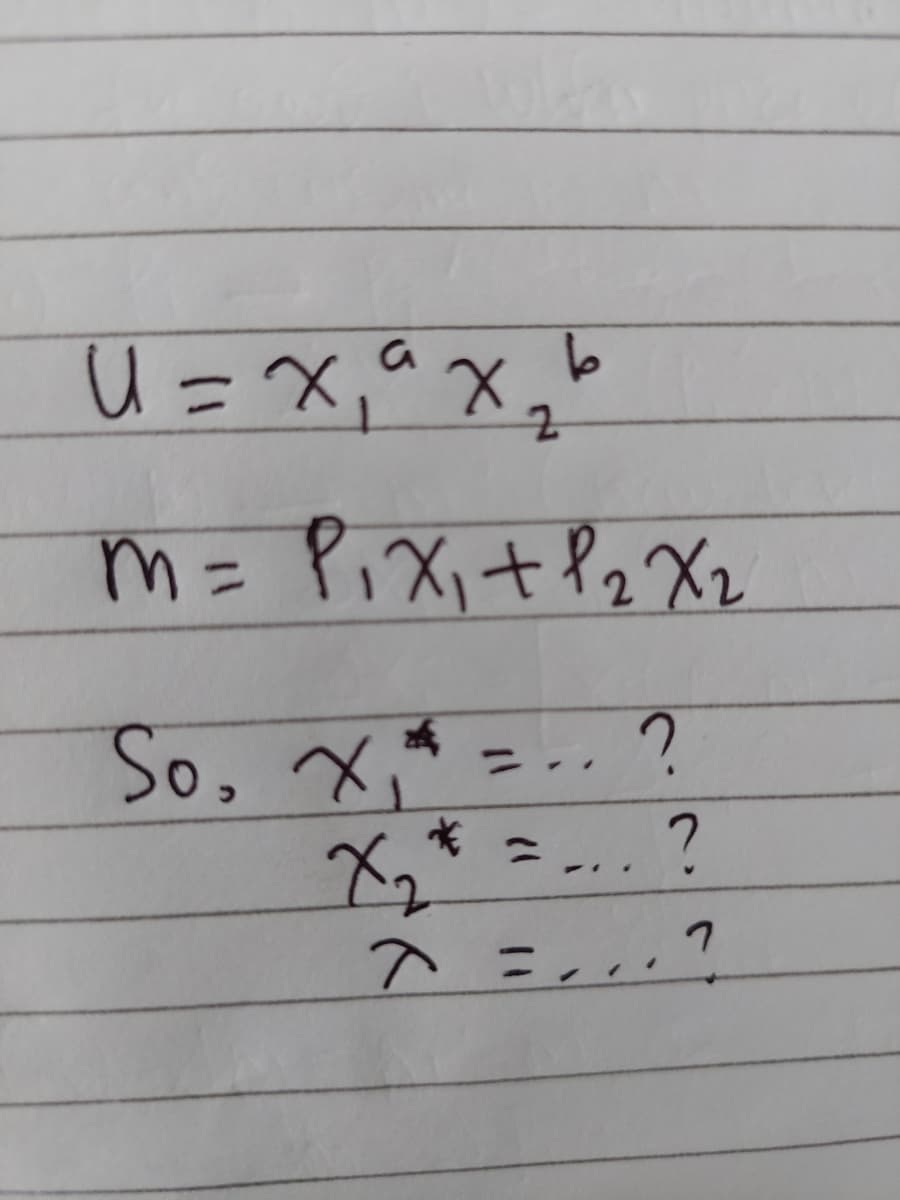 U = x₁ᵃ x₂ᵇ
m = P₁x₁ + P₂x₂
So, x₁* = ... ?
x₂* = ... ?
λ = ... ?